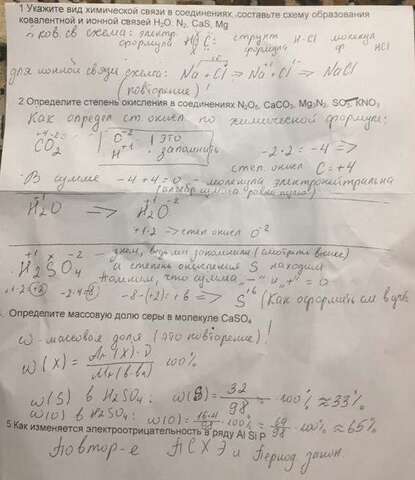 1 Укажите вид химической связи в соединениях ,составьте схему образования
ковалентной и ионной связей H₂O. N₂, CaS, Mg
ков св схема: электр. H C: структ H-Cl молекул
формула формула ф HCl
для ионной связи схема: Na + Cl → Na⁺ Cl⁻ ⇒ NaCl
(повторение)!
2.Определите степень окисления в соединениях N₂O₅, CaCO₃, Mg₃N₂, SO₂, KNO₃
Как определ ст окисл по химической формуле:
CO₂ O⁻² это
H⁺¹ запомнить -2·2=-4 ⇒
степ. окисл C=+4
В сумме -4+4=0 - молекула электронейтральна
H₂O ⇒ H₂O⁻²
+1·2 ⇒ степ окисл O⁻²
H₂SO₄ запомнили (смотрите выше)
и степень окисления S находим
помним, что сумма "-" и "+" = 0
+1·2=+2 -2·4=-8 -8-(+2)=+6 ⇒ S⁺⁶ (Как оформить см выше
Определите массовую долю серы в молекуле CaSO₄
ω-массовая доля (это повторение)!
ω(X) = 100%
ω(S) в H₂SO₄: ω(S)= 32/98 ·100% ≈ 33%
ω(O) в H₂SO₄: ω(O)= 16·4/98 ·100% = 64/98 ·100% ≈ 65%
5.Как изменяется электроотрицательность в ряду Al Si P
Повтор-е ПСХЭ и Период закон.